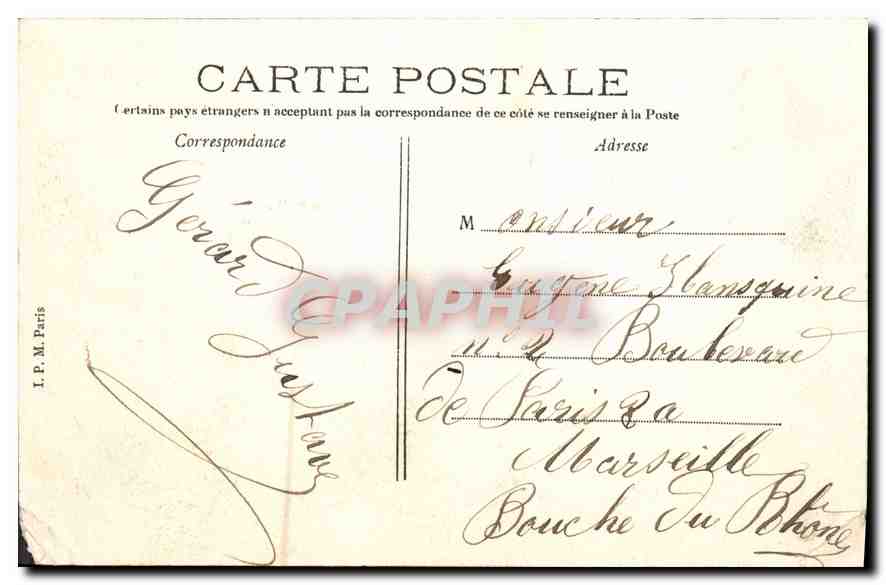 CARTE POSTALE
Certains pays étrangers n acceptant pas la correspondance de ce côté se renseigner à la Poste
Correspondance
Adresse
Gérard Gustave
Monsieur
Eugene Hansquine
n° 2 Boulevard
de Paris 2 a
Marseille
Bouche du Rhône
I. P. M. Paris
CPAPHIL